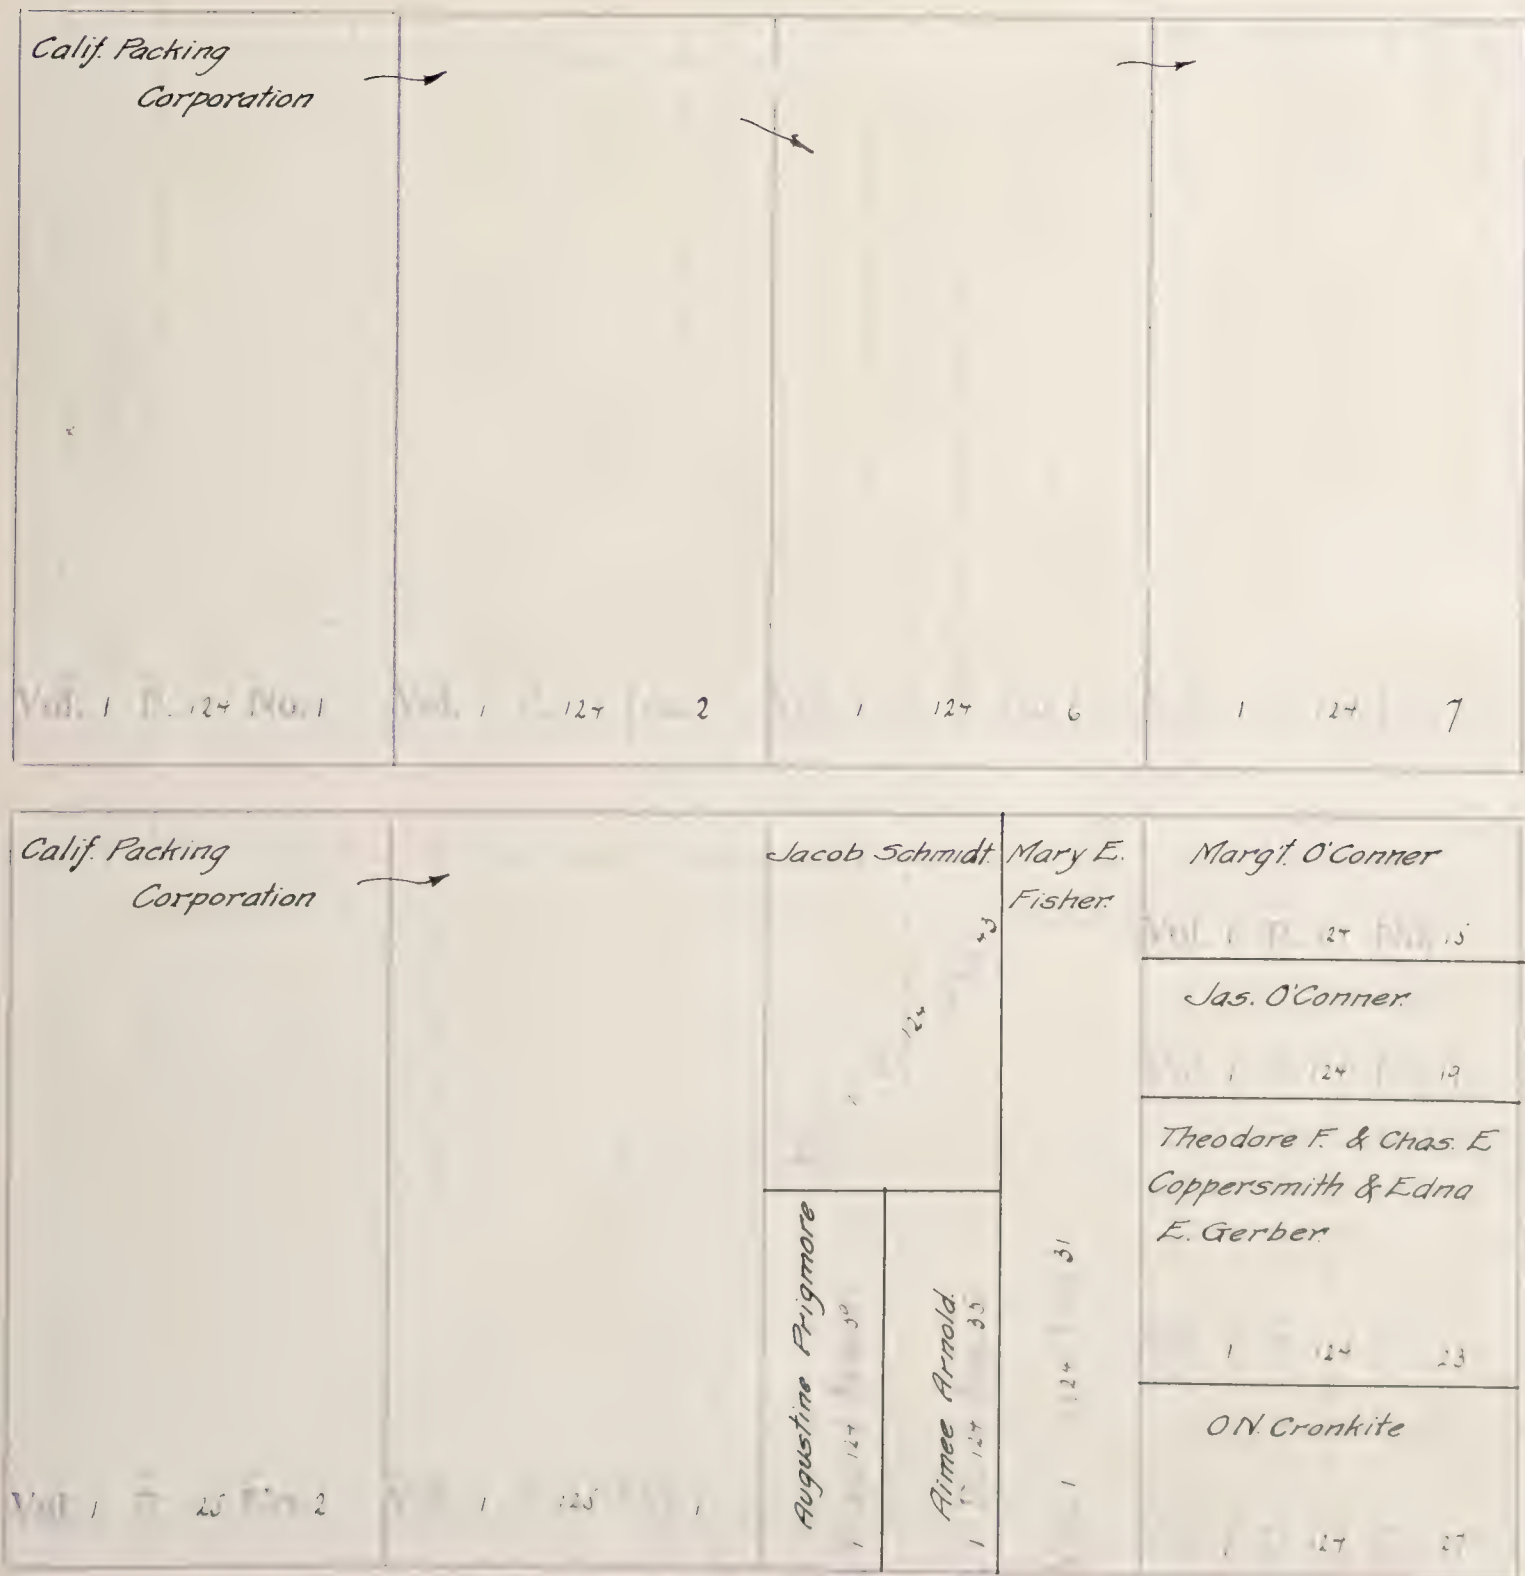 Calif. Packing
Corporation
Vol. 1 P. 124 No. 1
Vol. 1 P. 124 No. 2
1 124 6
1 124 7
Calif. Packing
Corporation
Vol. 1 P. 125 No. 2
1 125 1
Jacob Schmidt.
124 43
Augustine Prigmore
1 124 39
Aimee Arnold.
1 P. 124 35
Mary E.
Fisher.
1 124 31
Margt. O'Conner
Vol. 1 P. 124 No. 15
Jas. O'Conner.
Vol. 1 124 19
Theodore F. & Chas. E
Coppersmith & Edna
E. Gerber.
1 124 23
O N. Cronkite
1 124 27